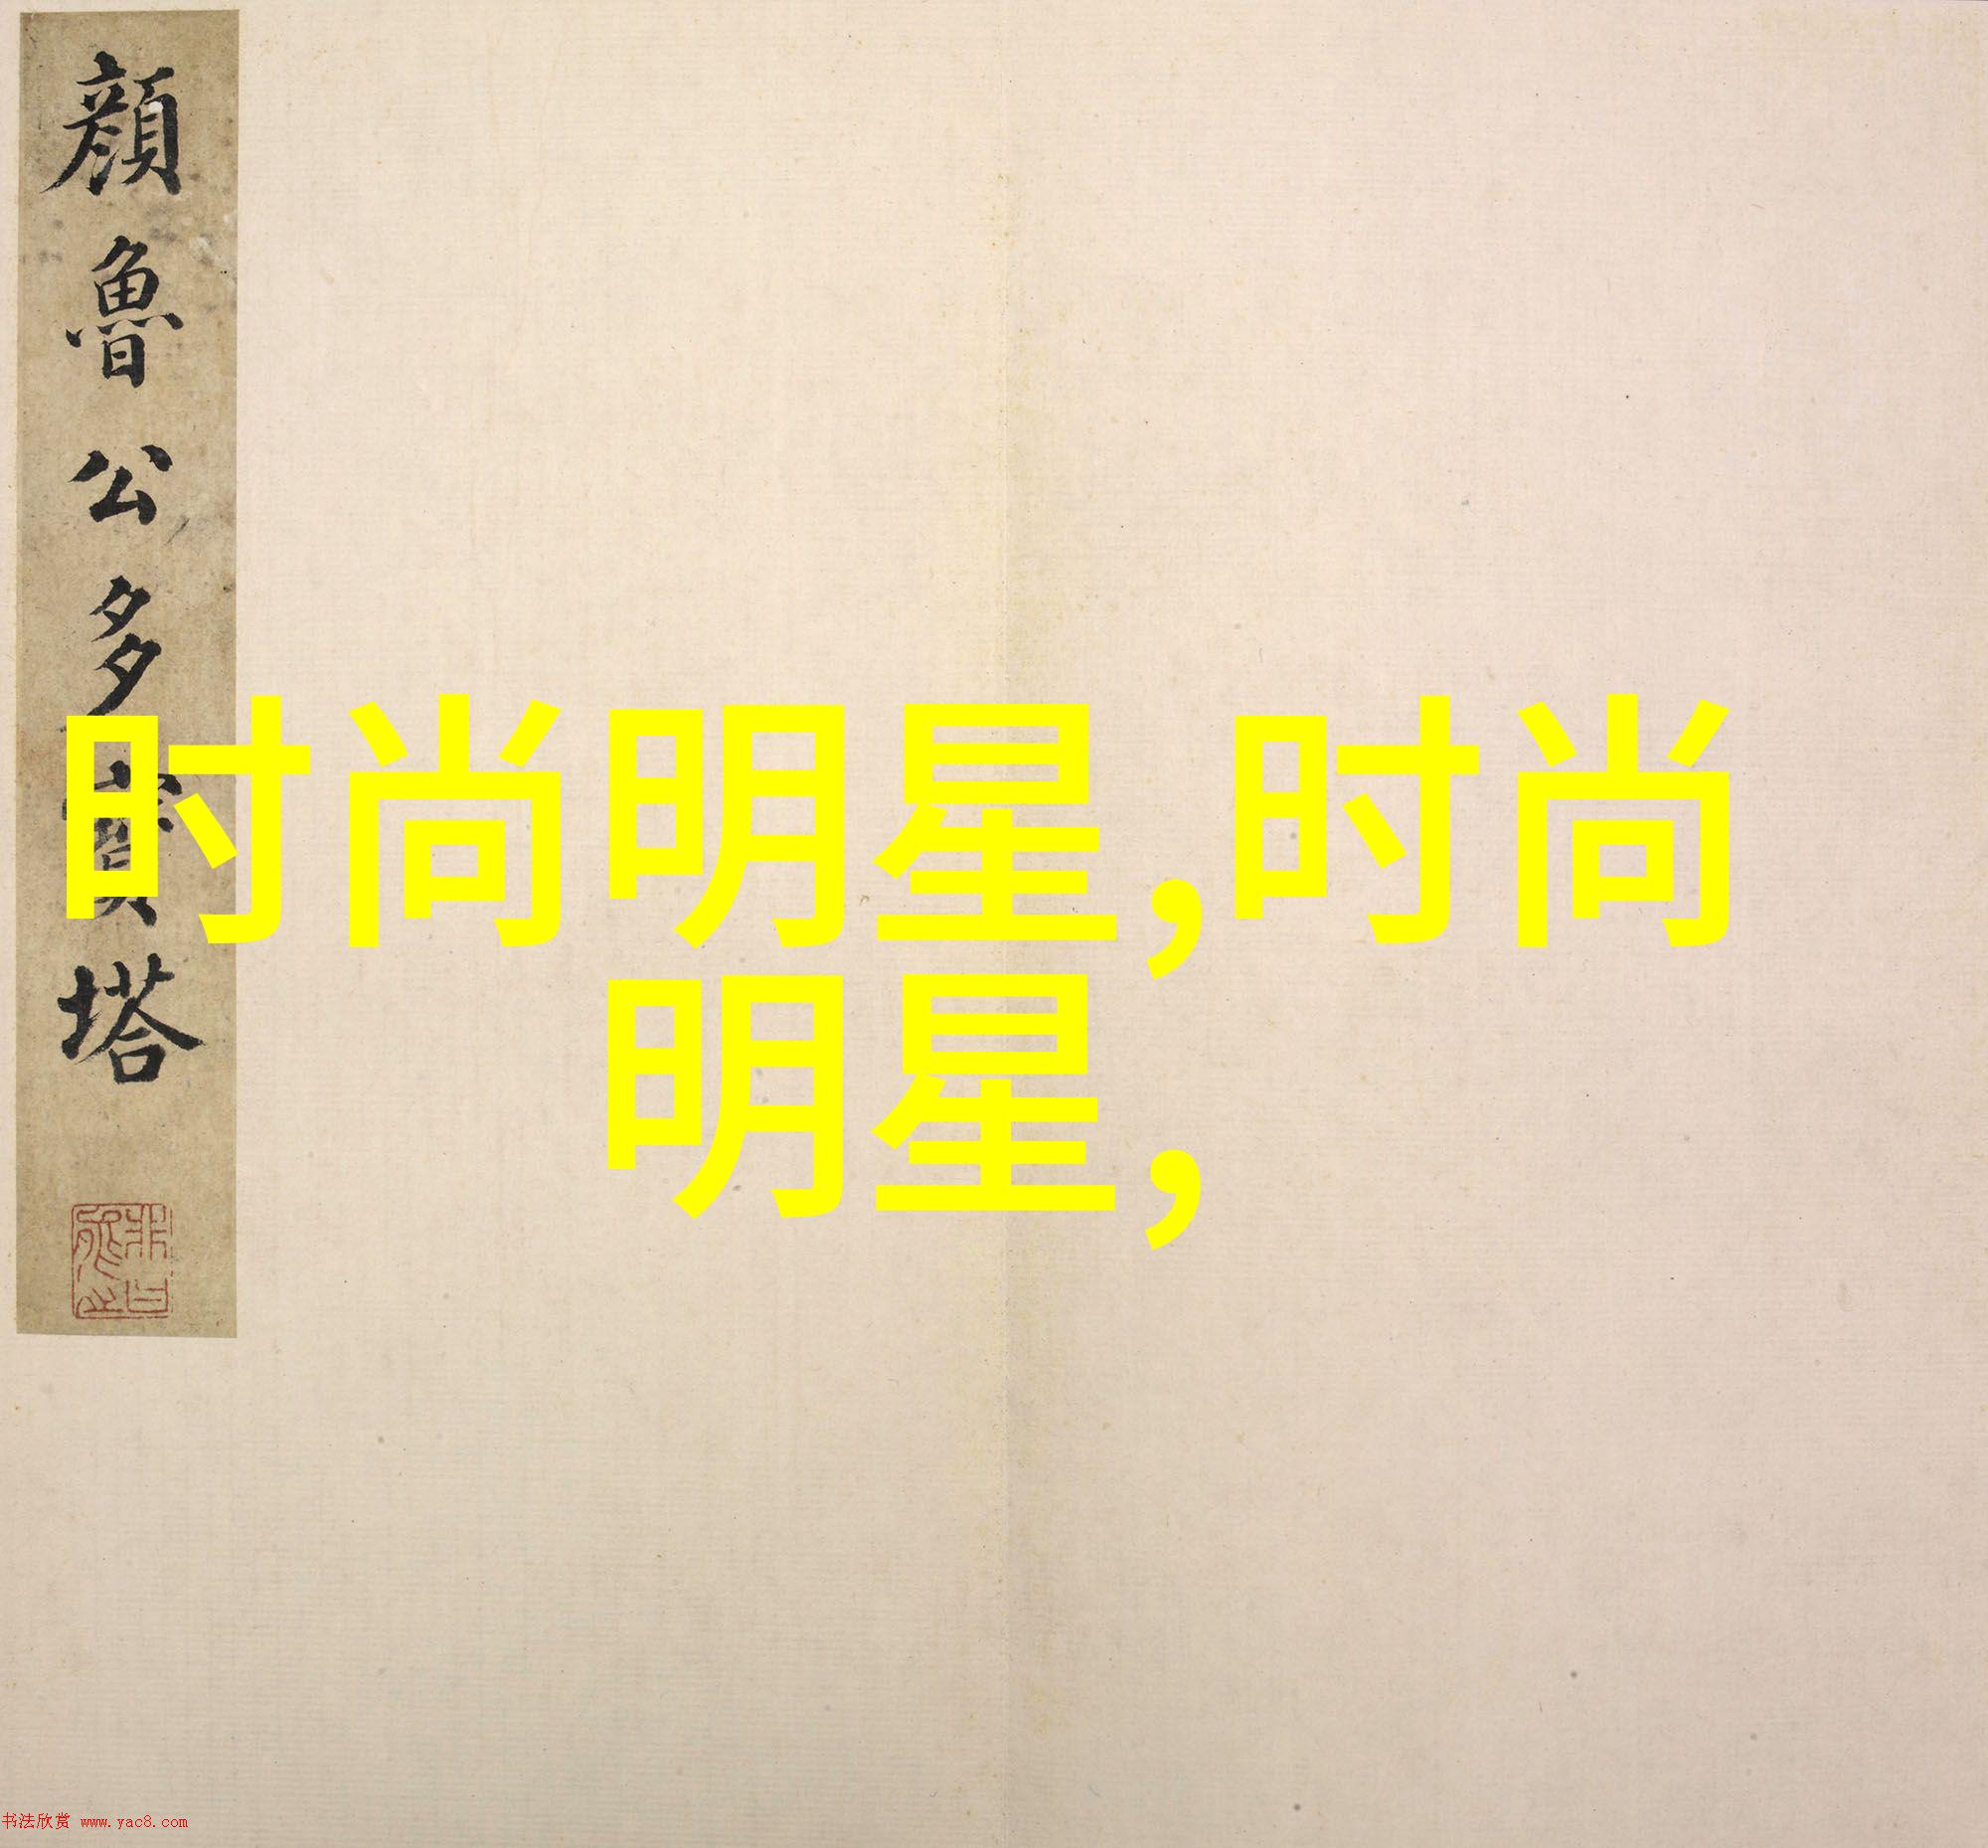 顔魯公多寳塔
时尚明星,时尚
明星,
书法欣赏 www.yac8.com